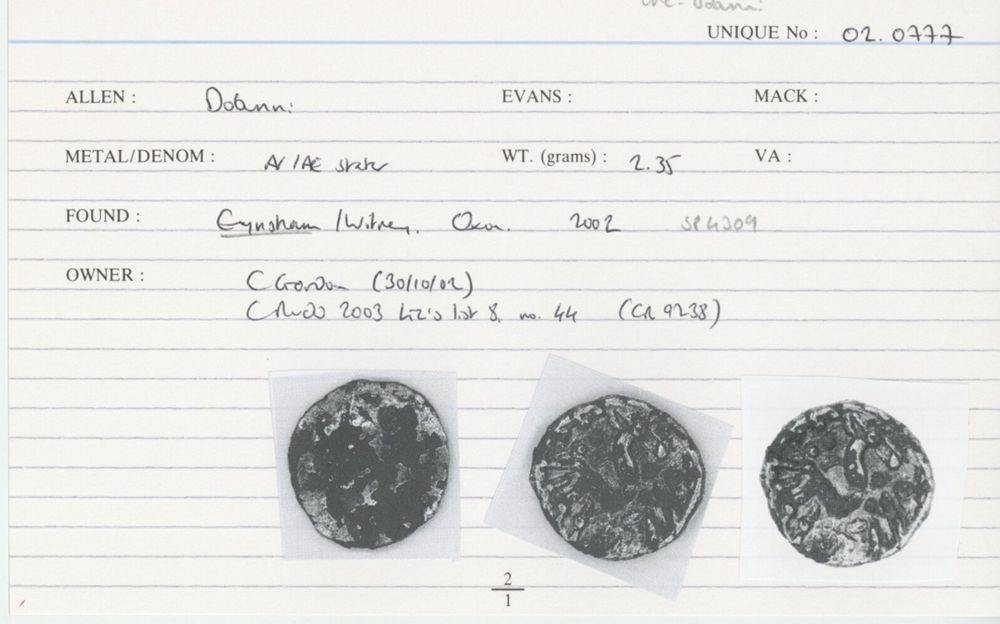 UNIQUE No : 02.0777
ALLEN : Dobunni EVANS : MACK :
METAL/DENOM : AV/AE stater WT. (grams) : 2.35 VA :
FOUND : Eynsham/Witney, Oxon. 2002 SP4309
OWNER : C Gordon (30/10/02)
C Rudd 2003 Liz's list 8, no. 44 (CR 9238)
2
1